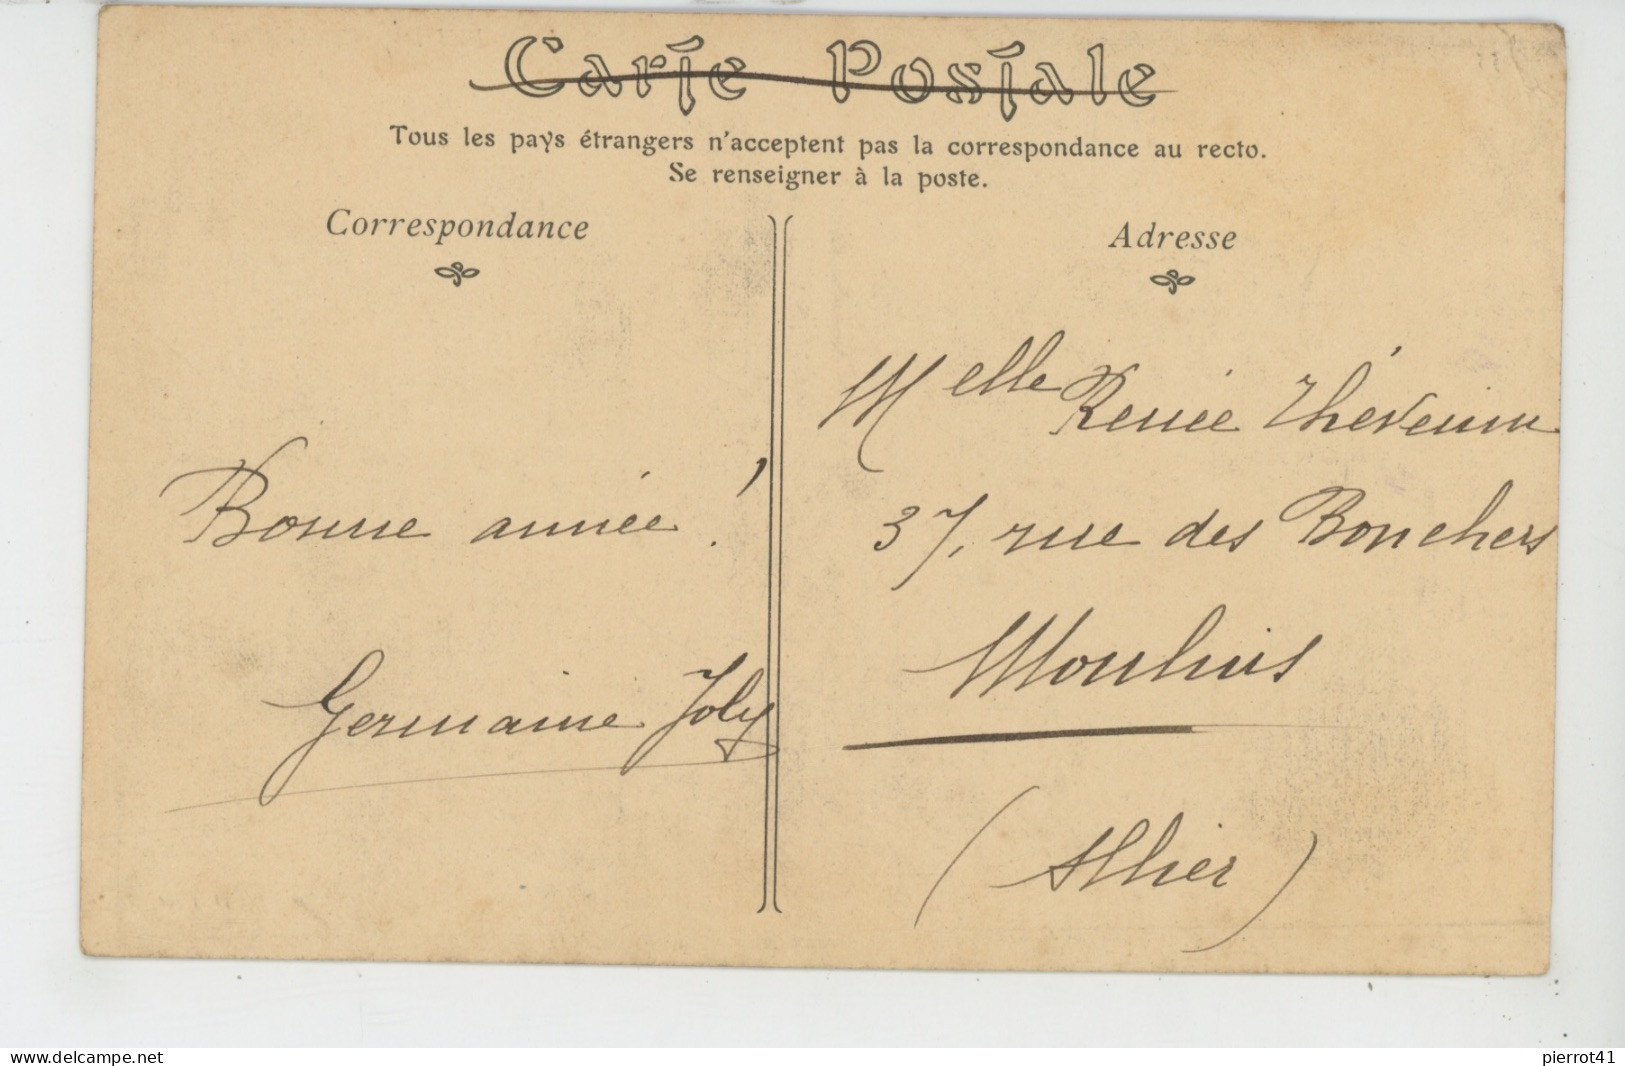 Carte Postale
Tous les pays étrangers n'acceptent pas la correspondance au recto.
Se renseigner à la poste.
Correspondance
Bonne année !
Germaine Joly
Adresse
Melle Renée Thévenin
37, rue des Bouchers
Moulins
(Allier)
www.delcampe.net
pierrot41